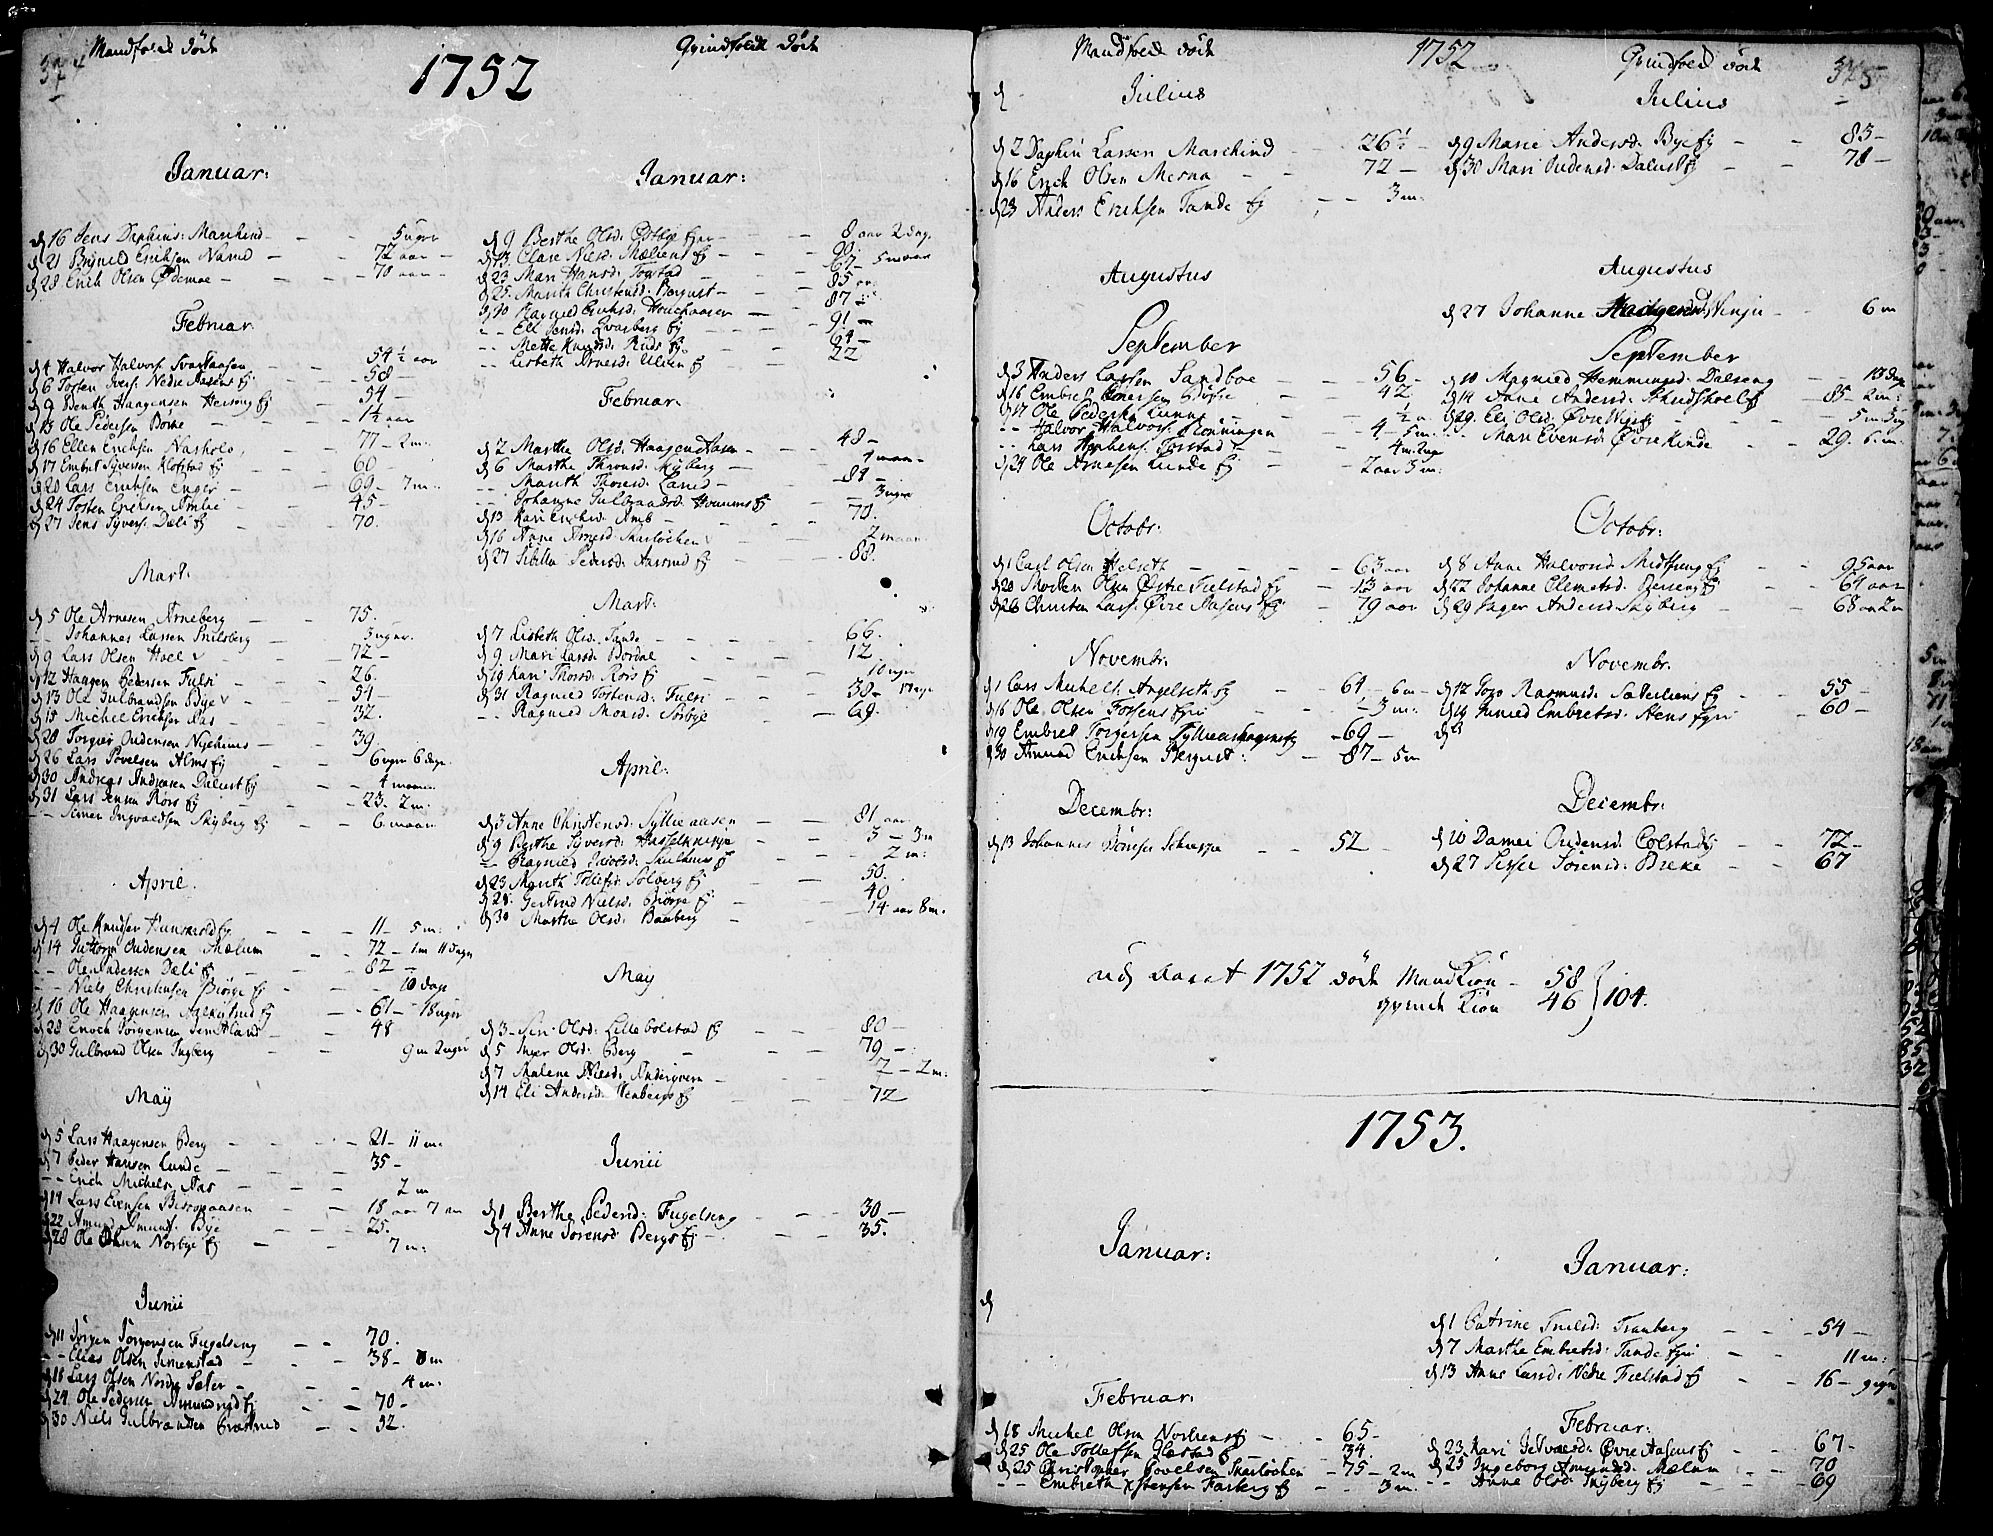 374
Mandkiøn Døde
Qvindkiøn Døde
1752
Januar:
16 Jens Daphins: Marchind - - 5 uger
21 Brynild Erichsen Narud - 72 aar -
28 Erich Olsen Ødemoe - - - 70 aar -
Februar
4 Halvor Halvors: Svartaasen - - 54 ½ aar
6 Tosten Ivers: Nedre Aasens - - 58 -
9 Benth Haagensen - - 54 -
13 Ole Pedersen - - 1½ aar
16 Ellen Erichsen Narholo - 77 - 2 m:
17 Embret Syversen Klofstad - 60
20 Lars Erichsen Enger - - 69 - 7 m:
24 Tosten Erichsen - - 45 -
27 Jens Syvers: Dæli - - 70.
Mart:
5 Ole Arnesen Arneberg - - 75.
- - Johannes Larsen Snilsberg - - 3 uger.
9 Lars Olsen Hoel - - 72 -
12 Haagen Pedersen Fulsi - - 26.
13 Ole Gulbrandsen Bye - - 54 -
15 Michel Erichsen Aas - - 32.
20 Torger Oudensen - - 39
26 Lars Povelsen Alms - 6 uger 6 dage
30 Andreas Andreasen Dalust - - 4 maan:
31 Lars Jensen Rørs - - 23. 2 m:
- - Simen Ingvaldsen Skyberg - - 6 maan
April.
4 Ole Knudsen - - 11 - 5 m:
14 Guttorm Oudensen Mælum - - 72 - 1 m 11 dage
- - Ole Andersen Dæli - 82 -
- - Niels Christensen Biørge - - 10 dage
16 Ole Haagensen - - 61 - 18 uger
28 Enoch Jørgensen - - 48
30 Gulbrand Olsen Ingberg - - 9 m 2 uger
May
5 Lars Haagensen Berg - - 21 - 11 m:
7 Peder Hansen Lunde - - 35 -
- - Erich Michels: Aas - - 2 m
14 Lars Evensen Bisopaasen - - 18 aar 7 m
22 Amund Amunds: Bye - - 25.
28 Ole Norbye - - 7 m:
Junii
11 Jørgen Jørgensen Fugelseng - - 70.
- - Elias Olsen Simenstad - - 38 - m
18 Lars Olsen Nordre Sæter - - 4 m:
24 Ole Pedersen Amundrud - - 70 -
30 Niels Gulbrandsen - - 32.
Januar:
9 Berthe Olsd: - - 8 aar 2 dag.
13 Clare Nielsd: Mæhens - - 90. -
23 Mari Hansd: Togstad - - 67 - 5 maan
25 Marith Christensd: Bergust - - 85 aar
30 Ragnild Erichsd: Houchaasen - - 87 -
- - Eli Jensd: Qvarberg - - 91 -
- - Mette Knudsd: Ruds - - 64 -
- - Lisbeth Arnesd: Ulven - - 22
Februar.
2 Marthe Olsd: Haagenstasen - 48 -
6 Marthe Thronsd: Skyberg - 4 maan
- - Marith Thoresd: Lanud - - 84 -
- - Johanne Gulbrandsd: Hvamms - 3 uger
13 Kari Erichsd: Amb - - 70.
16 Anne Arnesd: Skarlochen - - 2 maan
27 Sibilla Pedersd: Aasrud - - 88.
Mart:
7 Lisbeth Olsd: Tande - - 66.
9 Mari Larsd: Bordal - - 12.
19 Kari Thorsd: Rørs - - 10 uger
31 Ragnild Tostensd: Fulsi - - 38 - 17 uge
- - Ragnild Monsd: Norbye - - 69.
April:
3 Anne Christensd: Syllieaasen - - 81 aar
9 Berthe Syversd: Hasselknippe - - 3 - 3 m
- - Ragnild Jacobsd: - - 2 m:
23 Marith Tollefsd: Solberg - - 50.
28 Gertrud Nielsd: Biørge - - 40.
30 Marthe Olsd: Baaberg - - 14 aar 8 m.
May
3 Siri Olsd: Lille bolstad - - 80 -
5 Inger Olsd: Berg - - 79 -
7 Malene Nielsd: Andergveen - - 2 - 2 m:
14 Eli Andersd: Stenbergs - - 72
Junii
1 Berthe Pedersd: Fugelseng - - 30 -
4 Anne Sørensd: Bergs - - 35.
Mandkiøn døde
1752
Qvindkiøn døde
375
Julius
2 Daphin Larsen Marchind - - 26½ -
16 Erich Olsen Mesna - - 72 -
23 Anders Erichsen Tande - - 3 m:
Augustus
September
3 Anders Larsen Sandboe - - 56 -
16 Embret - 42
17 Ole Pedersen Lunne - - ½ a
- - Halvor Halvors: Rønningen - 4 - 5 m.
- - Lars Torstad - - 4 m. 2 uge
24 Ole Arnesen Lunde - - 2 aar 3 m:
Octobr:
1 Carl Olsen Helseth - - 63 aar
20 Morten Olsen Østre Fielstad - 13 aar
26 Christen Lars: Øvre Aasens - 79 aar
Novembr:
1 Lars Michels: Angelseth - - 64 - 6 m -
16 Ole Olsen Fossens - - 3 m:
19 Embret Torgersen - 69 -
30 Amund Erichsen Bergust: - 87 - 5 m
Decembr:
13 Johannes - - 52 -
Julius
9 Marie Andersd: Bye - - 85 -
30 Mari Oudensd: Dalust - - 78 -
Augustus
27 Johanne Vinju - - 6 m
September
10 Magnild Hemmingsd: Dalseng - - 13 dage
14 Anne Andersd: Skudshoel - 85 - 2 m:
29. Eli Olsd: Øvre - - 5 m 3 uge
- - Mari Evensd: Øvre Kinde - 29. 6 m:
Octobr:
8 Anne Halvorsd: Midtseng - - 95 aar
22 Johanne Clemetsd: - - 64 aar
29 Inger Andersd: Skyberg - - 68 aar 2 m
Novembr:
12 Goro Rasmusd: Sætuliens - - 55 -
19 Gunild Embretsd: Stens - 60 -
Decembr:
10 Damei Oudensd: Colstad - - 72 -
27 Sissel Sørensd: Breke - - 67
udj aaret 1752 døde Mandkiøn - 58
qvindekiøn 46 } 104.
1753.
Januar:
Februar:
18 Michel Olsen - - 65 -
25 Ole Tollefsen Glæstad - - 34.
25 Christopher Povelsen Skarlochen - 75 - 2 m
- - Embreth Xstensen Farberg - - 3 m.
Januar:
1 Catrine Truelsd: Tranberg - - 54 -
7 Marthe Embretsd: Tande - - 11 m:
13 Anne Larsd: Nedre Fielstad - - 16 - 9 uger
Februar:
23. Kari Øvre Aasens - - 67 -
25 Ingeborg Amundsd: Mælum - - 70
- - Anne Olsd: Skyberg - - 69